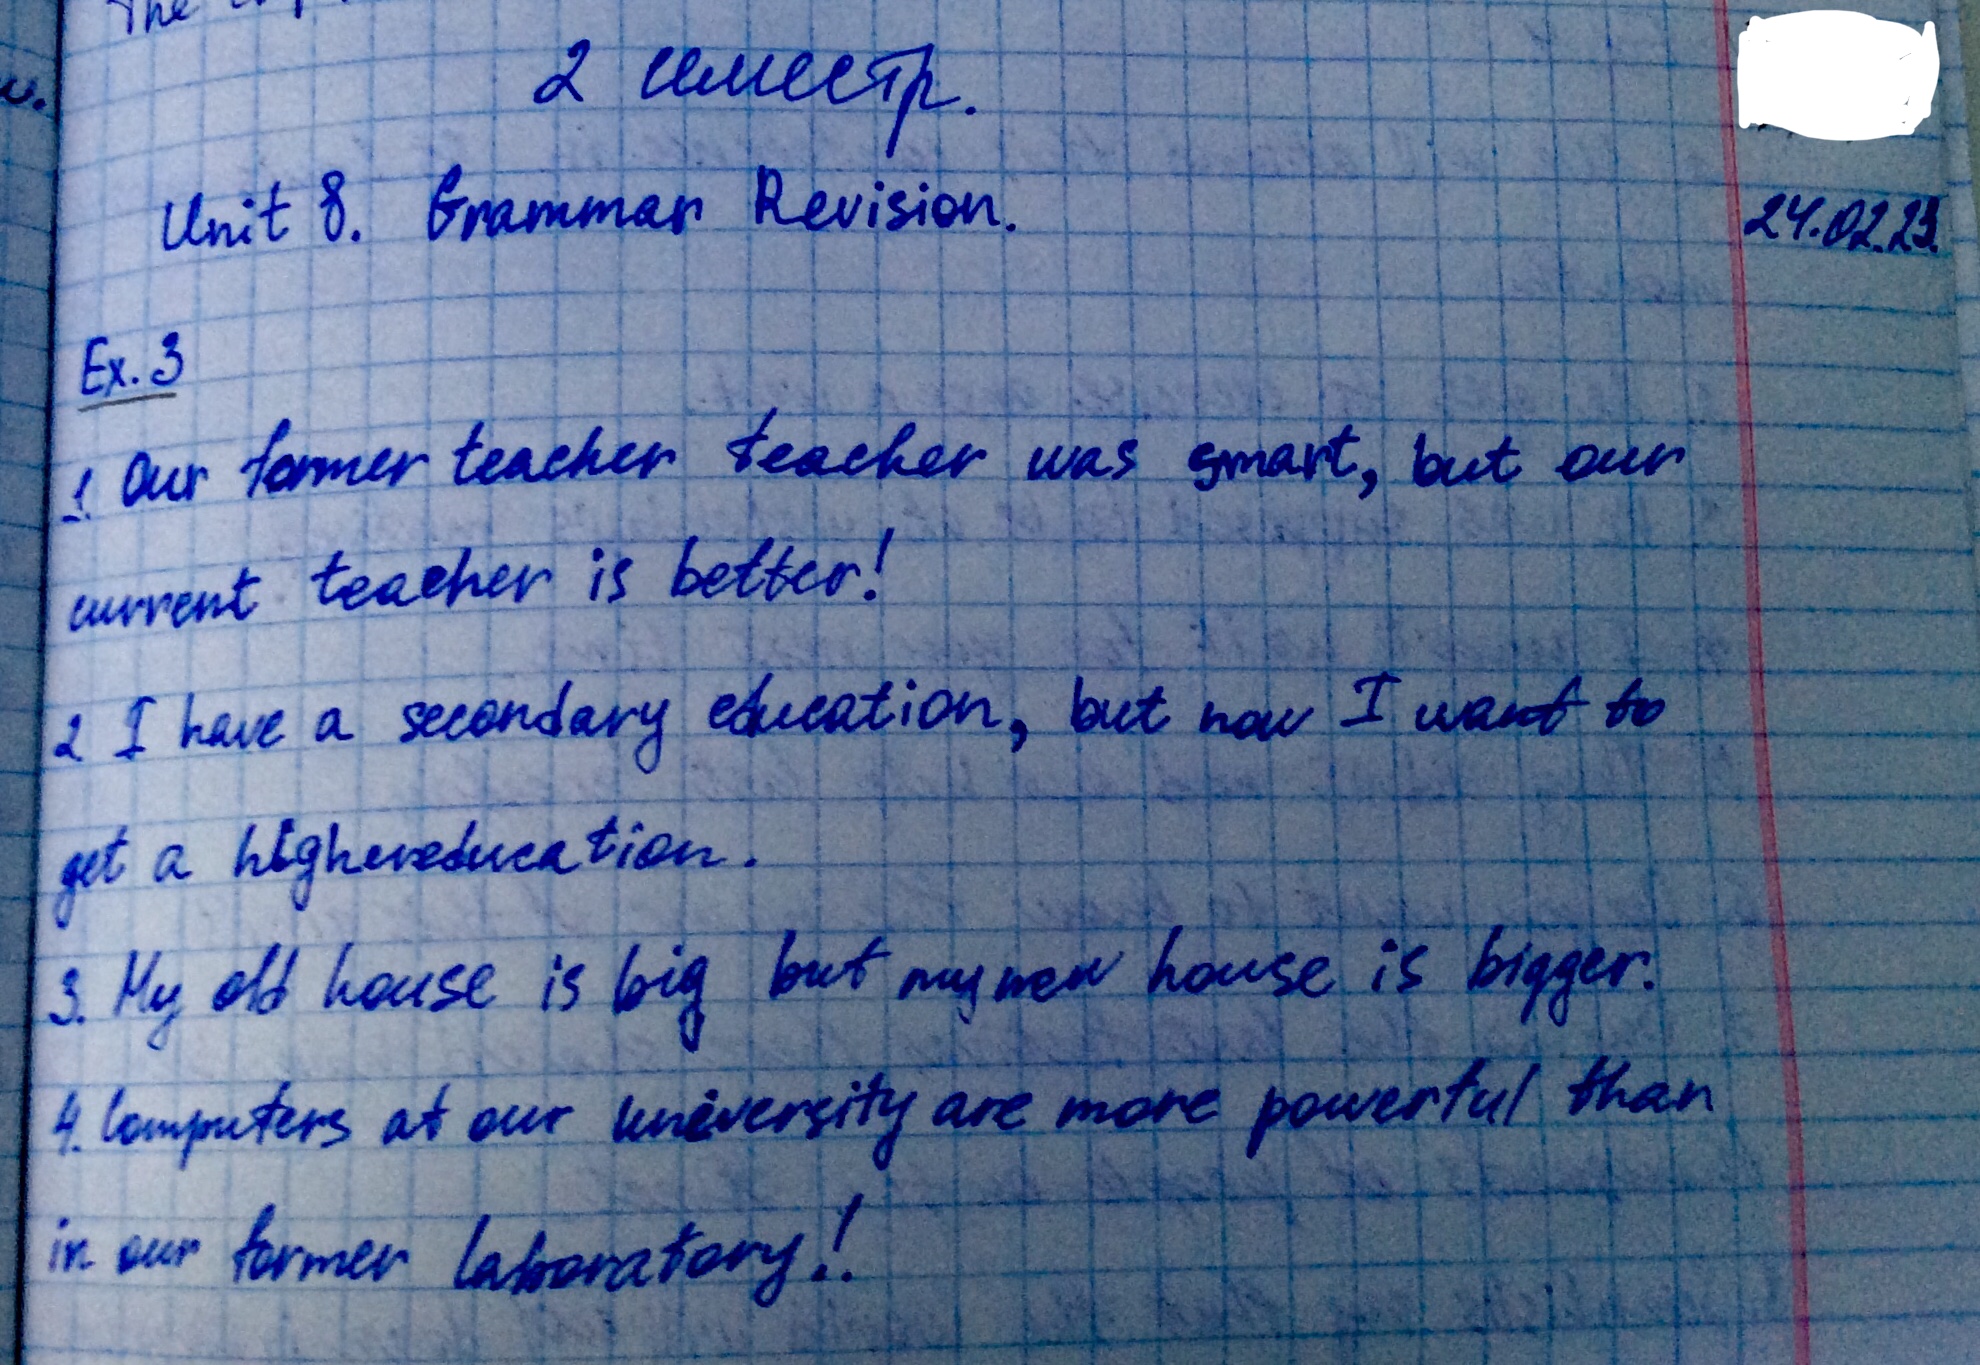 The
2 семестр.
Unit 8. Grammar Revision.
24.02.23.
Ex. 3
1. Our former teacher teacher was smart, but our
current teacher is better!
2 I have a secondary education, but now I want to
get a highereducation.
3. My old house is big but my new house is bigger.
4. Computers at our university are more powerful than
in our former laboratory!